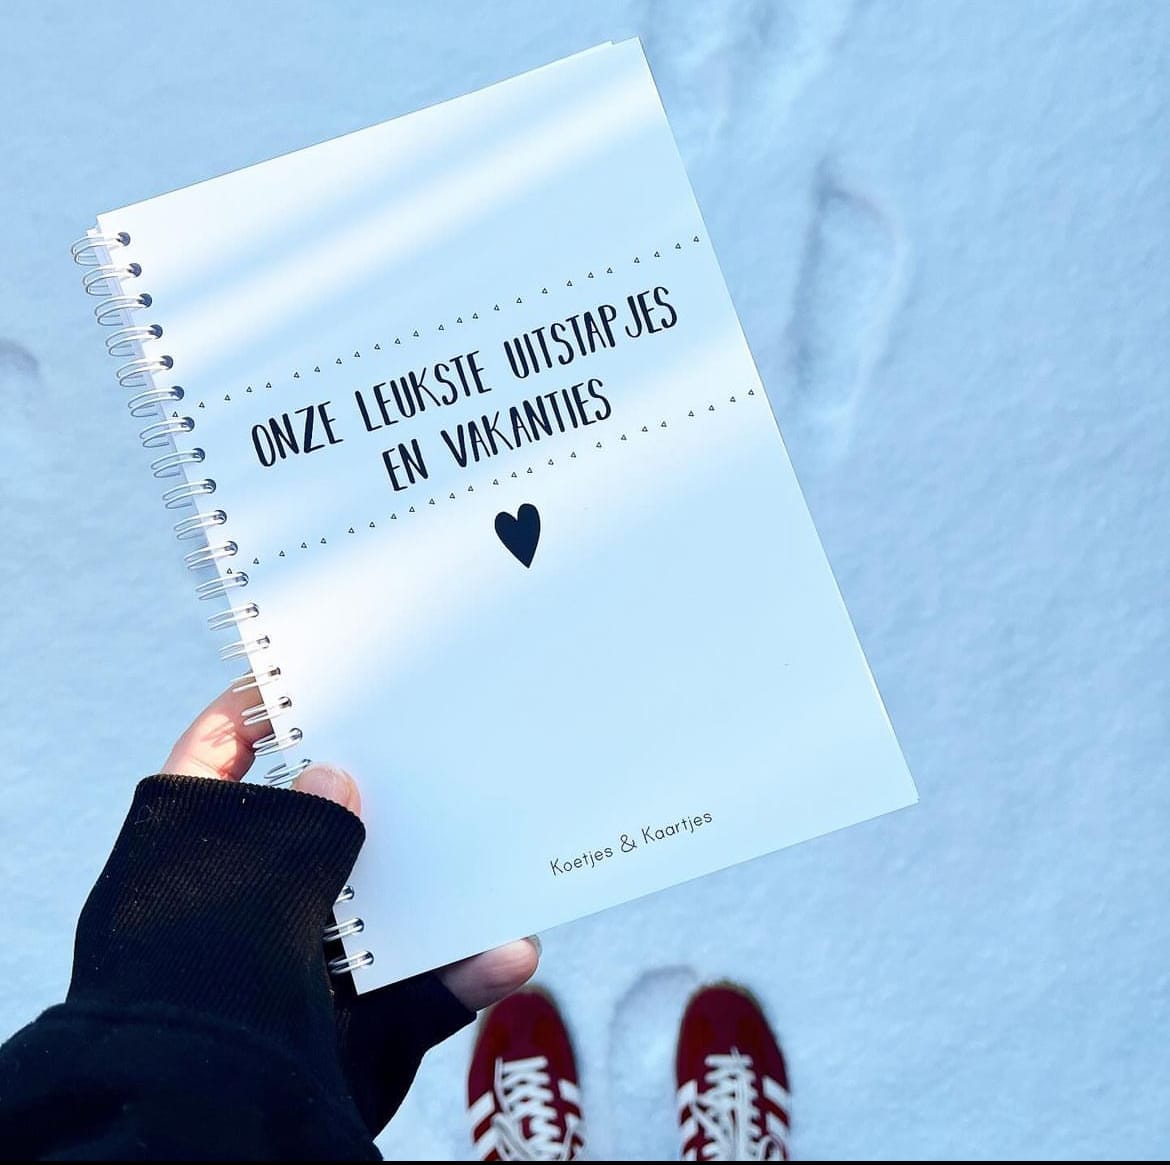 ONZE LEUKSTE UITSTAPJES
EN VAKANTIES
Koetjes & Kaartjes